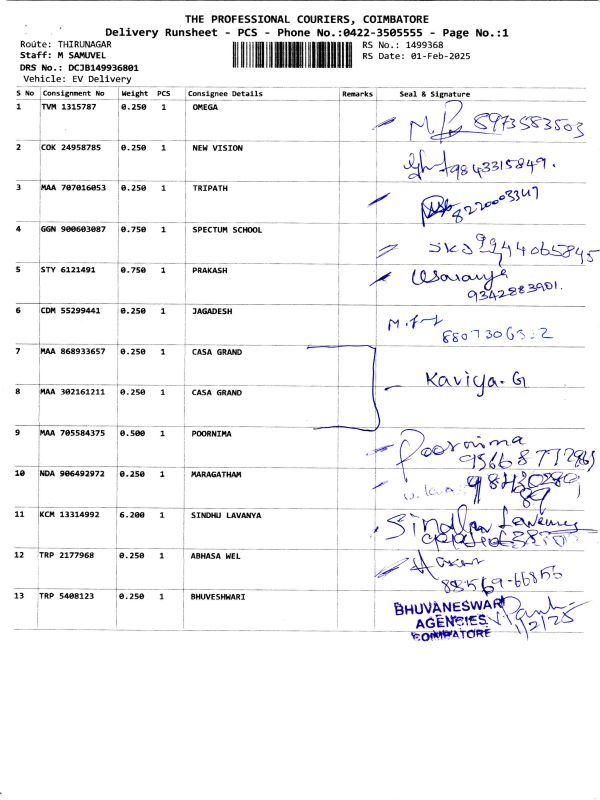 THE PROFESSIONAL COURIERS, COIMBATORE
Delivery Runsheet - PCS - Phone No.:0422-3505555 - Page No.:1
Route: THIRUNAGAR RS No.: 1499368
Staff: M SAMUVEL RS Date: 01-Feb-2025
DRS No.: DCJB149936801
Vehicle: EV Delivery
S No Consignment No Weight PCS Consignee Details Remarks Seal & Signature
1 TVM 1315787 0.250 1 OMEGA
8973583503
2 COK 24958785 0.250 1 NEW VISION
9843315849.
3 MAA 707016053 0.250 1 TRIPATH
8220003347
4 GGN 900603087 0.750 1 SPECTUM SCHOOL
9944065845
5 STY 6121491 0.750 1 PRAKASH
Usaranya
9342883901.
6 CDM 55299441 0.250 1 JAGADESH
7 MAA 868933657 0.250 1 CASA GRAND
Kaviya. G
8 MAA 302161211 0.250 1 CASA GRAND
9 MAA 705584375 0.500 1 POORNIMA
Poornima
10 NDA 906492972 0.250 1 MARAGATHAM
11 KCM 13314992 6.200 1 SINDHU LAVANYA
12 TRP 2177968 0.250 1 ABHASA WEL
88569-66855
13 TRP 5408123 0.250 1 BHUVESHWARI
BHUVANESWARI
AGENCIES
COIMBATORE
1/2/25